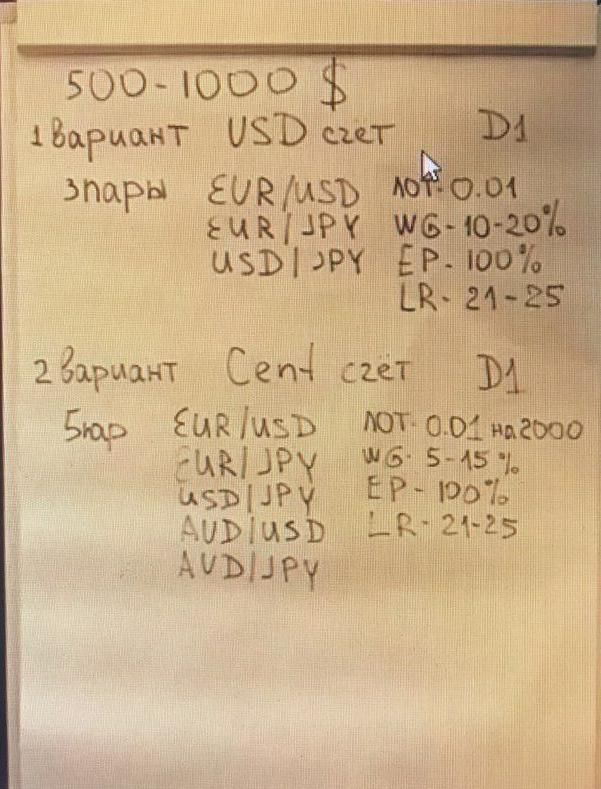 500-1000 $
1 вариант USD счёт D1
3 пары EUR/USD ЛОТ-0.01
EUR/JPY WG-10-20%
USD/JPY EP-100%
LR-21-25
2 вариант Cent счёт D1
5 пар EUR/USD ЛОТ-0.01 на 2000
EUR/JPY WG-5-15%
USD/JPY EP-100%
AUD/USD LR-21-25
AUD/JPY